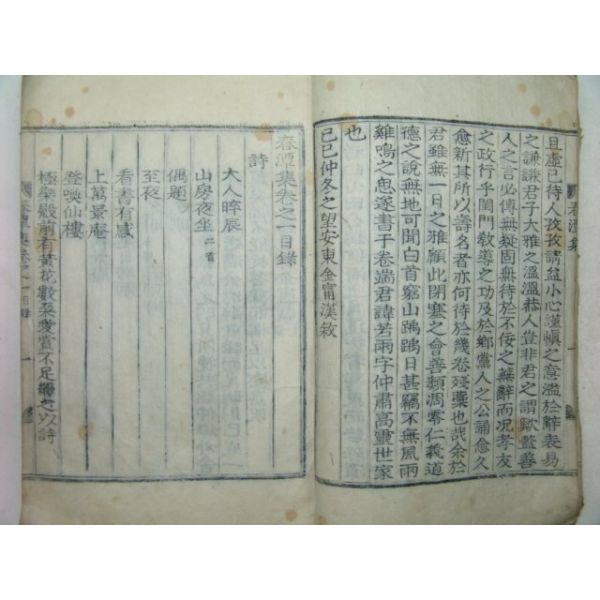 且虛已待人孜孜請益小心謹愼之意濫於辭表易
之謙謙君子大雅之溫溫恭人豈非君之謂歟盖善
人之言必傳無疑固無待於不佞之蕪辭而况孝友
之政行乎閨門敎導之功及於鄕黨人之公誦愈久
愈新其所以壽名者亦何待於幾卷殘藁也哉余於
君雖無一日之雅顧此閉塞之會善類凋零仁義道
德之說無地可聞白首窮山踽踽日甚竊不無風雨
雞鳴之思遂書于卷端君諱若雨字仲肅高靈世家
也
己巳仲冬之望安東金甯漢敘
春潭集卷之一目錄
詩
大人晬辰
山房夜坐 二首
偶題
至夜
看書有感
上萬景庵
登喚仙樓
極樂殿前有黃花數朶愛賞不足繼之以詩